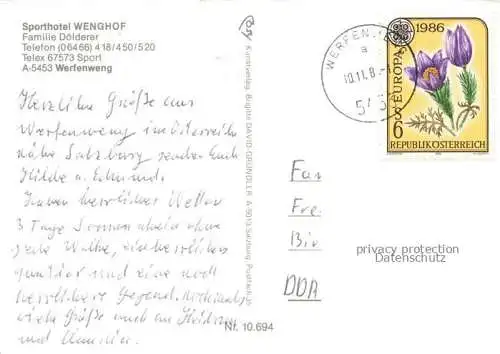 Sporthotel WENGHOF
Familie Dölderer
Telefon (06466) 418/450/520
Telex 67573 Sport
A-5453 Werfenweng
Herzliche Grüße aus
Werfenweng im Österreich
nähe Salzburg senden Euch
Hilde u. Edmund.
Haben herrliches Wetter
3 Tage Sonnenschein ohne
jede Wolke, ein herrliches
Quartier und eine noch
herrlichere Gegend. Nochmals
viele Grüße auch an
und
Kunstverlag Brigitte DAVID-GRÜNDLER A-5013 Salzburg, Postfach 20
Nr. 10.694
WERFENWENG
a
10.11.8
5453
1986
EUROPA
S
6
REPUBLIK ÖSTERREICH
Fam
Fre
Bir
DDR
privacy protection
Datenschutz